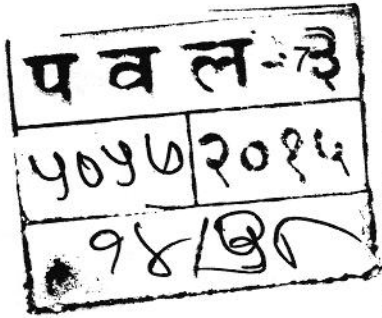 प व ल - ३
५०५७ २०१५
१४/